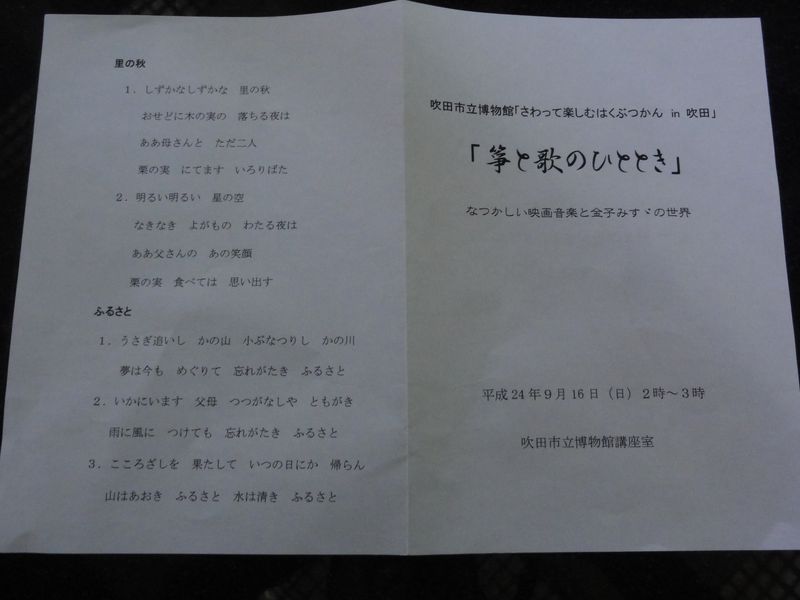 里の秋
１．しずかなしずかな　里の秋
おせどに木の実の　落ちる夜は
ああ母さんと　ただ二人
栗の実　にてます　いろりばた
２．明るい明るい　星の空
なきなき　よがもの　わたる夜は
ああ父さんの　あの笑顔
栗の実　食べては　思い出す
ふるさと
１．うさぎ追いし　かの山　小ぶなつりし　かの川
夢は今も　めぐりて　忘れがたき　ふるさと
２．いかにいます　父母　つつがなしや　ともがき
雨に風に　つけても　忘れがたき　ふるさと
３．こころざしを　果たして　いつの日にか　帰らん
山はあおき　ふるさと　水は清き　ふるさと
吹田市立博物館「さわって楽しむはくぶつかん in 吹田」
「箏と歌のひととき」
なつかしい映画音楽と金子みすゞの世界
平成24年９月16日（日）２時～３時
吹田市立博物館講座室